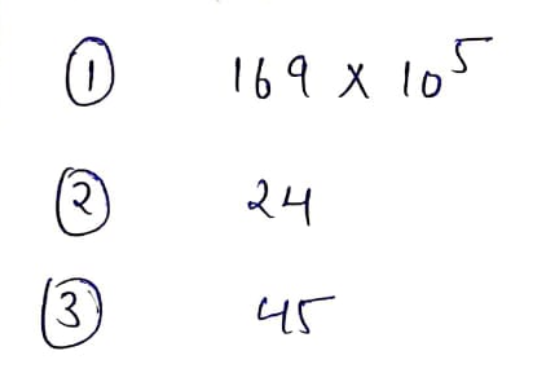 ① 169 × 10⁵
② 24
③ 45